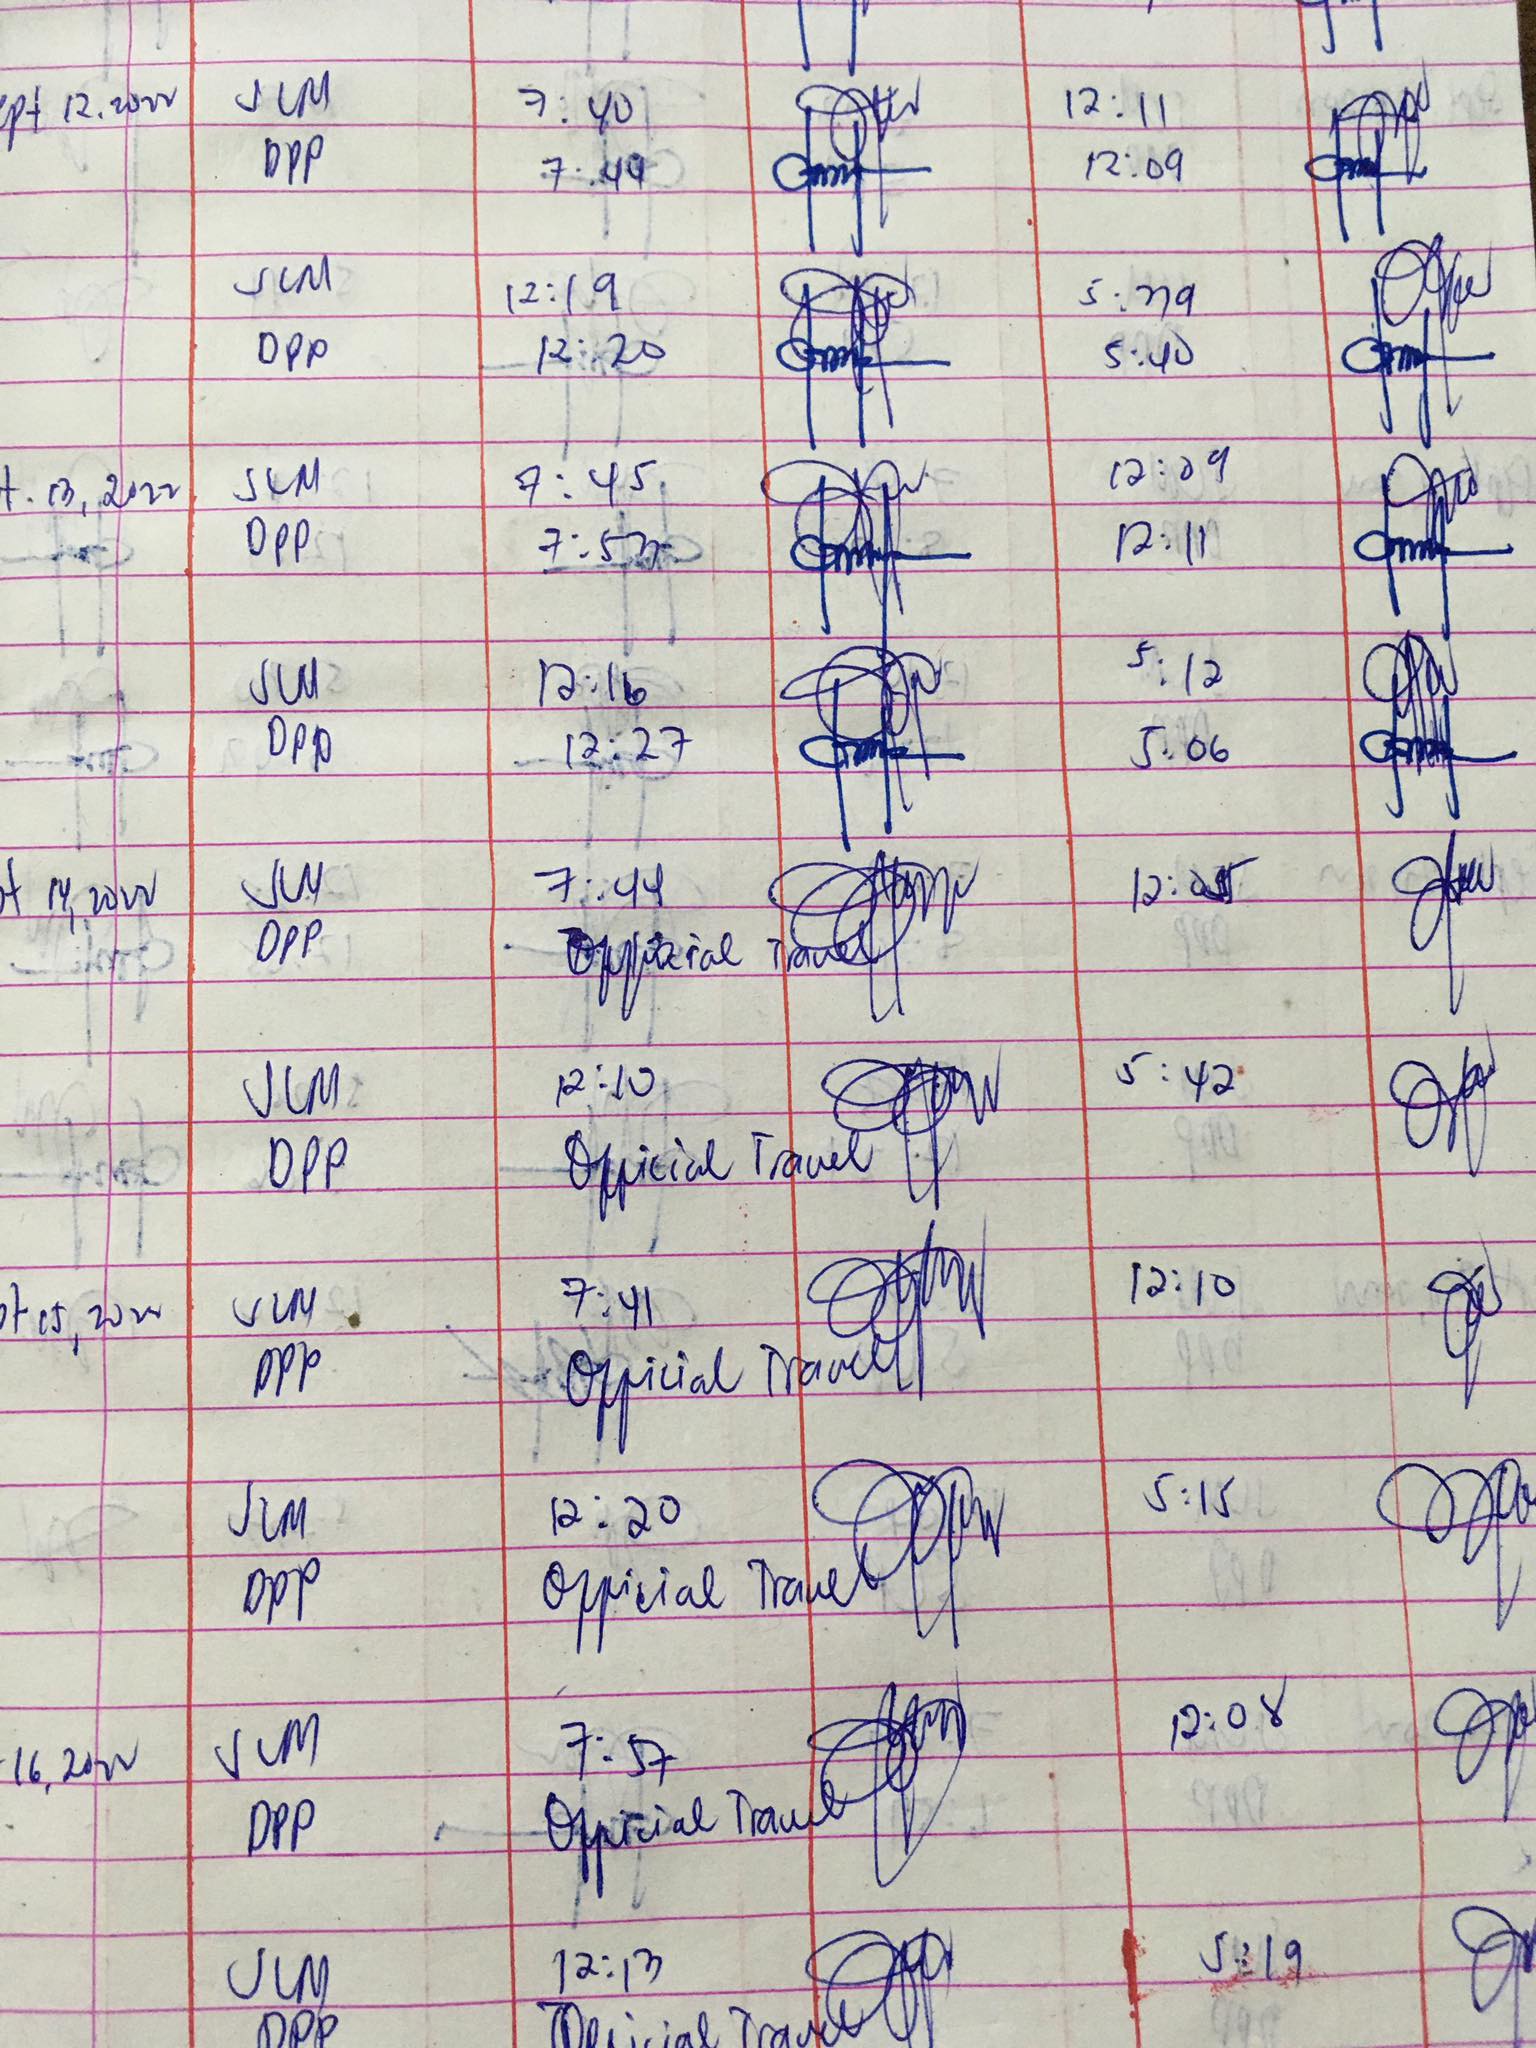 Sept 12, 2022 JLM 7:40 12:11
DPP 7:49 12:09
JLM 12:19 5:39
DPP 12:20 5:40
13, 2022 JLM 7:45 12:09
DPP 7:53 12:11
JLM 12:16 5:12
DPP 12:27 5:06
14, 2022 JLM 7:44 12:05
DPP Official Travel
JLM 12:10 5:42
DPP Official Travel
15, 2022 JLM 7:41 12:10
DPP Official Travel
JLM 12:20 5:15
DPP Official Travel
16, 2022 JLM 7:57 12:08
DPP Official Travel
JLM 12:13 5:19
DPP Official Travel